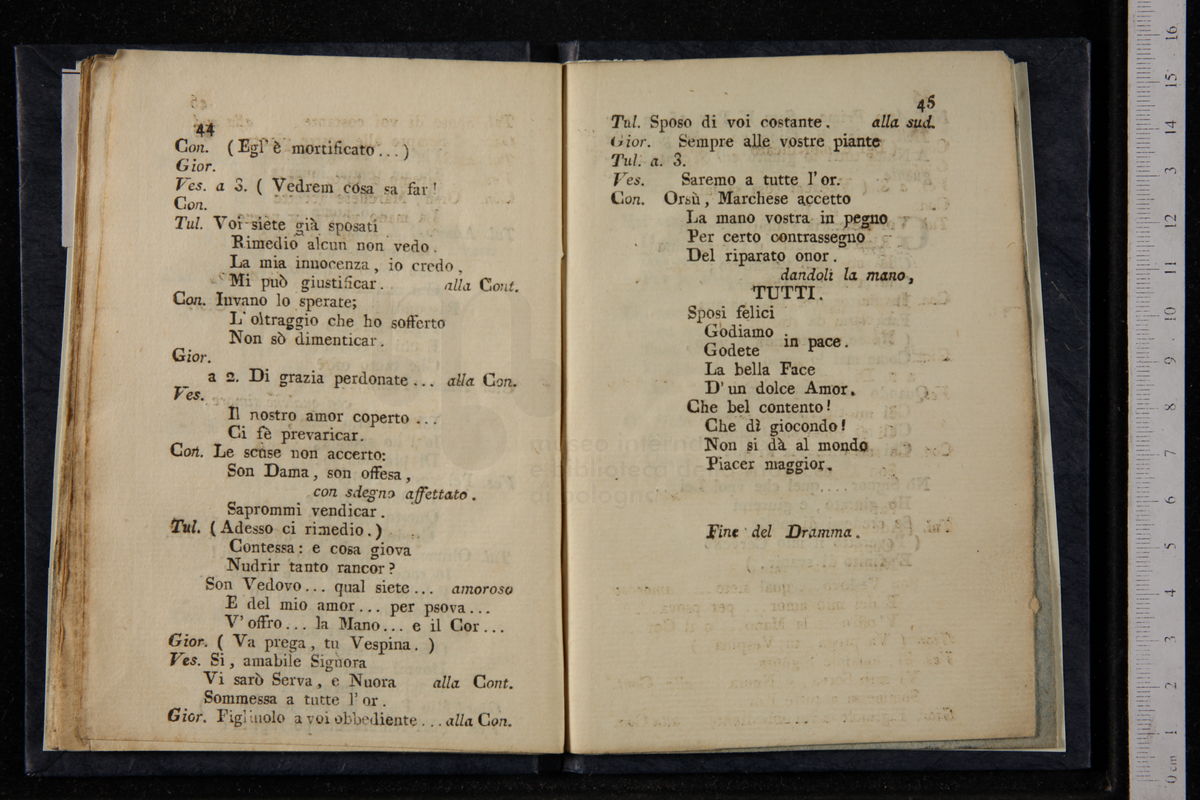 44
Con. ( Egl' è mortificato... )
Gior.
Ves. a 3. ( Vedrem cosa sa far!
Con.
Tul. Voi siete già sposati
Rimedio alcun non vedo.
La mia innocenza, io credo,
Mi può giustificar. alla Cont.
Con. Invano lo sperate;
L' oltraggio che ho sofferto
Non sò dimenticar.
Gior.
a 2. Di grazia perdonate... alla Con.
Ves.
Il nostro amor coperto...
Ci fè prevaricar.
Con. Le scuse non accerto:
Son Dama, son offesa,
con sdegno affettato.
Saprommi vendicar.
Tul. ( Adesso ci rimedio. )
Contessa: e cosa giova
Nudrir tanto rancor?
Son Vedovo... qual siete... amoroso
E del mio amor... per psova...
V' offro... la Mano... e il Cor...
Gior. ( Va prega, tu Vespina. )
Ves. Si, amabile Signora
Vi sarò Serva, e Nuora alla Cont.
Sommessa a tutte l' or.
Gior. Figliuolo a voi obbediente... alla Con.
45
Tul. Sposo di voi costante. alla sud.
Gior. Sempre alle vostre piante
Tul. a. 3.
Ves. Saremo a tutte l' or.
Con. Orsù, Marchese accetto
La mano vostra in pegno
Per certo contrassegno
Del riparato onor.
dandoli la mano,
TUTTI.
Sposi felici
Godiamo
Godete in pace.
La bella Face
D' un dolce Amor.
Che bel contento!
Che dì giocondo!
Non si dà al mondo
Piacer maggior.
Fine del Dramma.